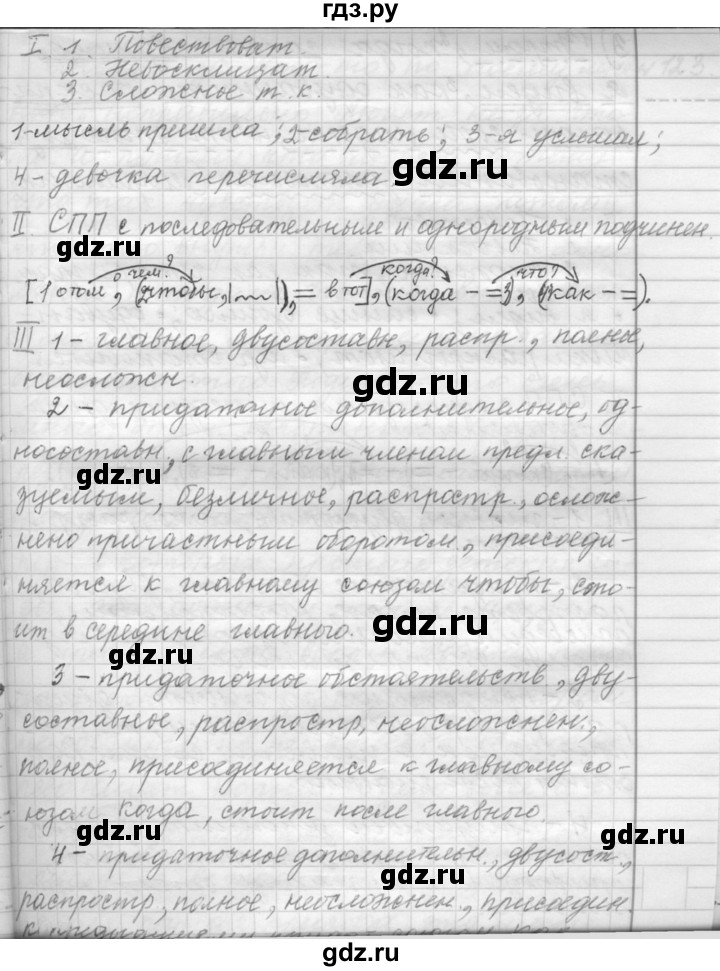 гдз.ру
I 1. Повествоват.
2. Невосклицат.
3. Сложное т.к. №123
1-мысль пришла; 2-собрать; 3-я услышал;
gdz.ru
4- девочка перечисляла
II. СПП с последовательным и однородным подчинен.
gdz.ru
о чем? когда? что?
[1 о том, (2чтобы, |~~|), = в тот], (когда - =3), (4как - =).
III 1- главное, двусоставн, распр., полное,
gdz.ru
неосложн.
2 - придаточное дополнительное, од-
носоставн, с главным членом предл. ска-
gdz.ru
зуемым, безличное, распростр., ослож-
нено причастным оборотом, присоеди-
няется к главному союзом чтобы, сто-
gdz.ru
ит в середине главного.
gdz.ru
3 - придаточное обстоятельств, дву-
составное, распростр, неосложнен.,
полное, присоединяется к главному со-
юзом когда, стоит после главного.
gdz.ru
gdz.ru
4- придаточное дополнительн., двусост.,
распростр, полное, неосложнен., присоедин.
gdz.ru
gdz.ru